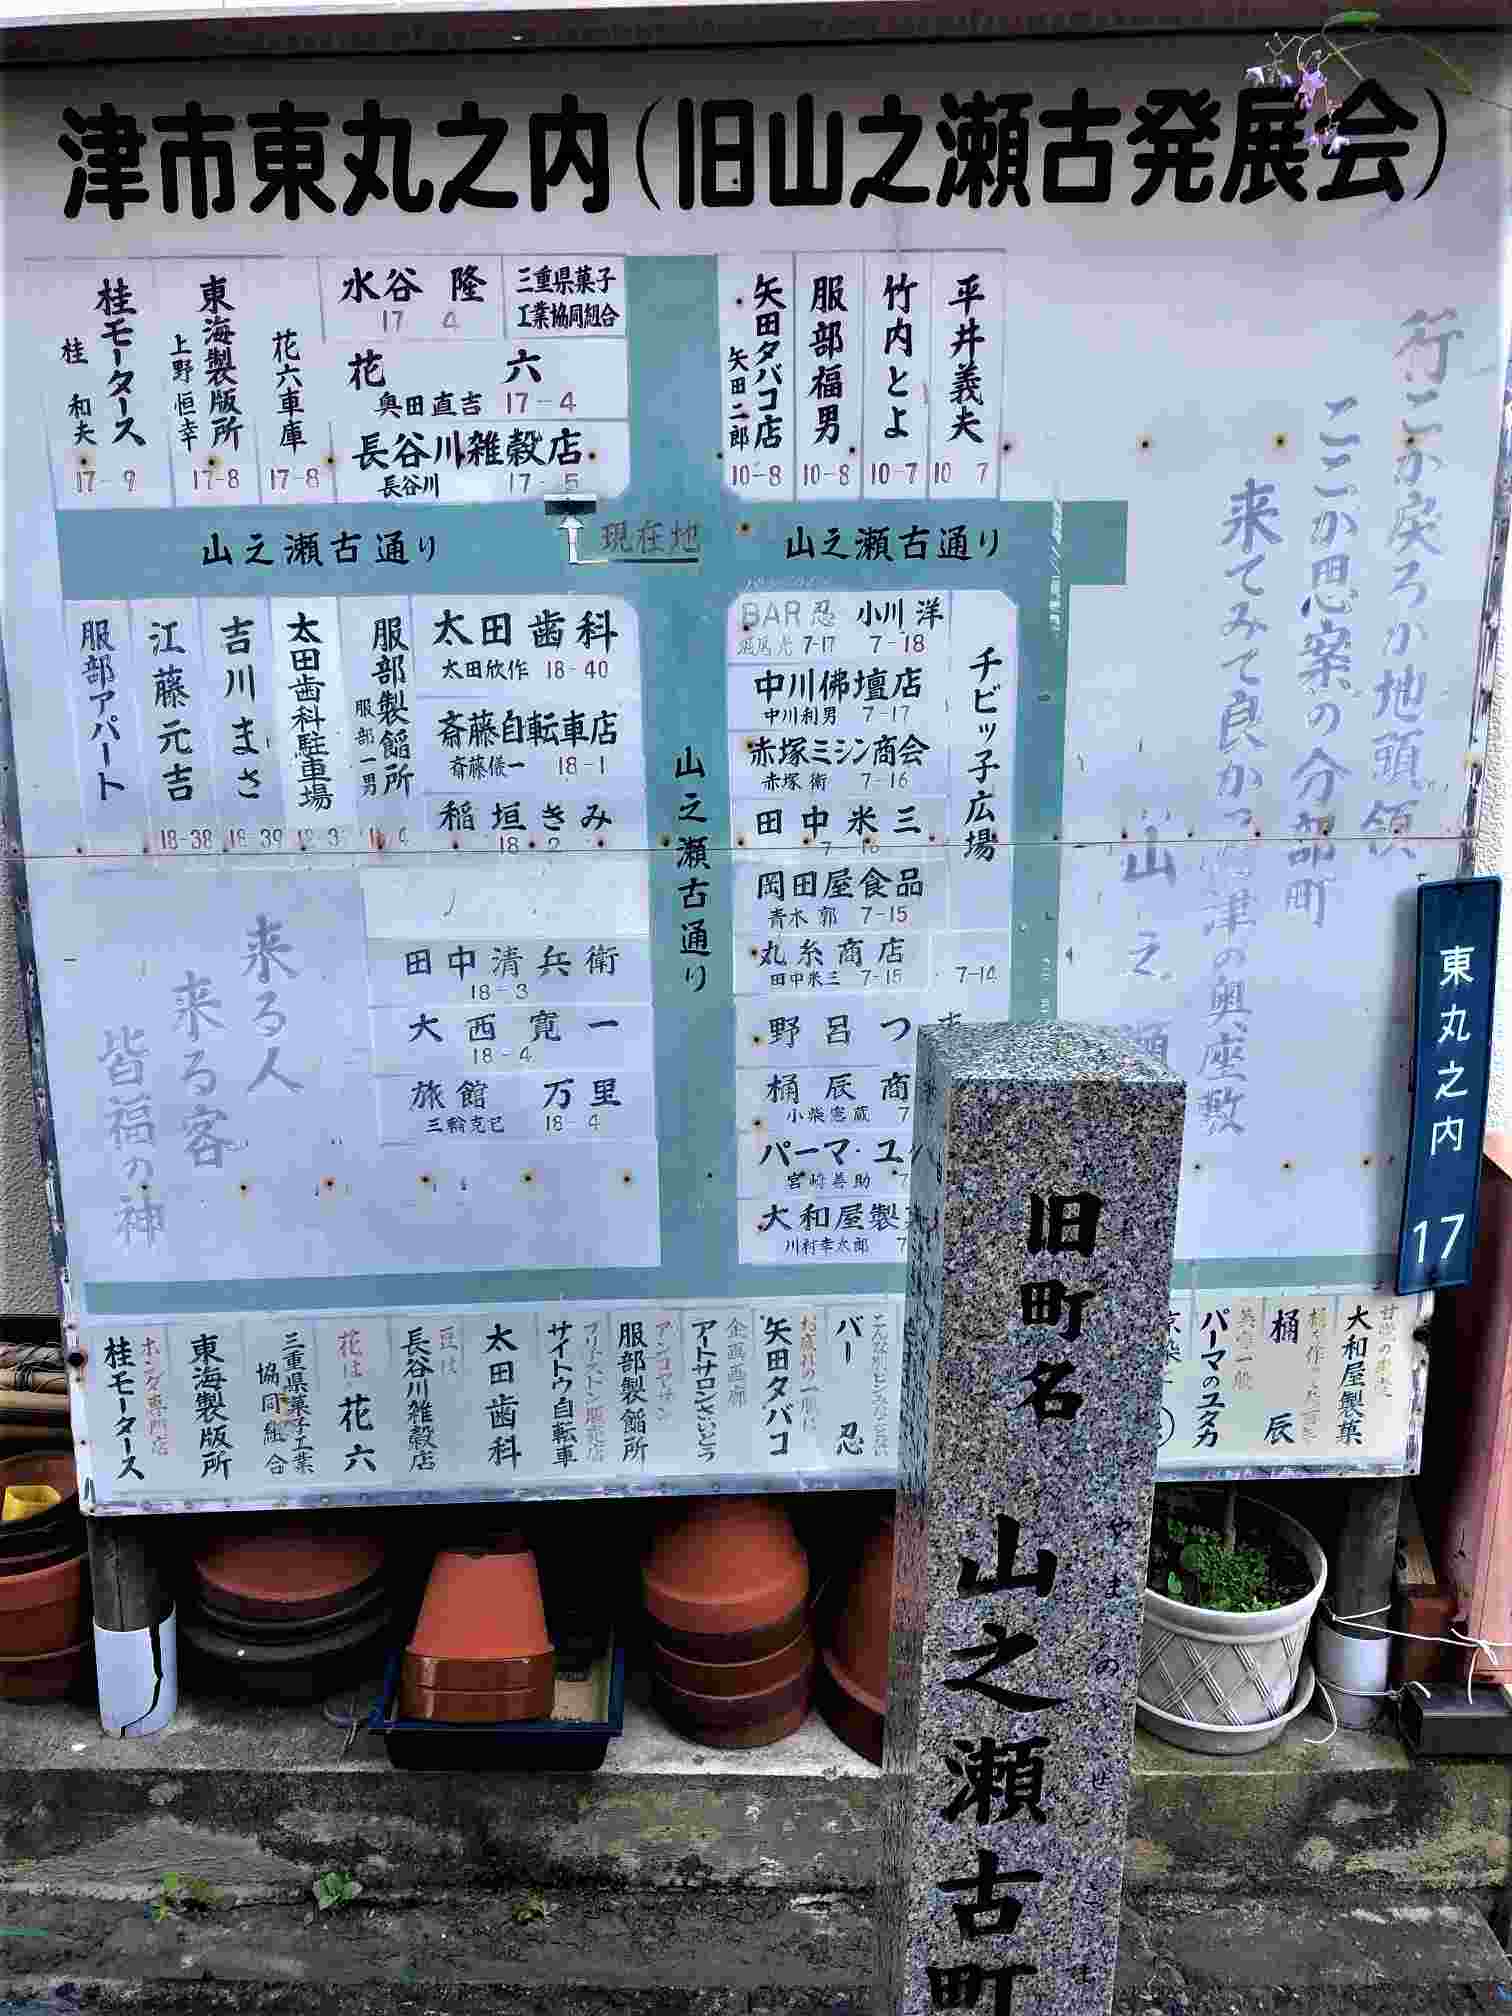 津市東丸之内（旧山之瀬古発展会）
桂モータース
桂 和夫
17-9
東海製版所
上野恒幸
17-8
花六車庫
17-8
水谷 隆
17 4
三重県菓子
工業協同組合
花 六
奥田直吉 17-4
長谷川雑穀店
長谷川 17-5
矢田タバコ店
矢田二郎
10-8
服部福男
10-8
竹内とよ
10-7
平井義夫
10 7
山之瀬古通り
現在地
山之瀬古通り
服部アパート
江藤元吉
18-38
吉川まさ
18-39
太田歯科駐車場
服部製餡所
服部一男
太田歯科
太田欣作 18-40
斎藤自転車店
斎藤儀一 18-1
稲垣きみ
18 2
田中清兵衛
18-3
大西寛一
18-4
旅館 万里
三輪克巳 18-4
山之瀬古通り
BAR忍
7-17
小川洋
7-18
中川佛壇店
中川利男 7-17
赤塚ミシン商会
赤塚 衛 7-16
田中米三
7-16
岡田屋食品
青木 郭 7-15
丸糸商店
田中米三 7-15
7-14
野呂つ
桶辰商
小柴憲蔵 7
パーマ・ユ
宮崎善助 7
大和屋製
川村幸太郎 7
チビッ子広場
行こか戻ろか地頭領
ここが思案の分部町
来てみて良かっ
津の奥座敷
山之瀬
来る人
来る客
皆福の神
桂モータース
ホンダ専門店
東海製版所
三重県菓子工業
協同組合
花は
花六
豆は
長谷川雑穀店
太田歯科
ブリヂストン販売店
サイトウ自転車
アンコヤサン
服部製餡所
企画画廊
アートサロンさいとう
お疲れの一服に
矢田タバコ
バー 忍
パーマのユタカ
桶辰
大和屋製菓
東丸之内 17
旧町名 山之瀬古町
やまのせこま